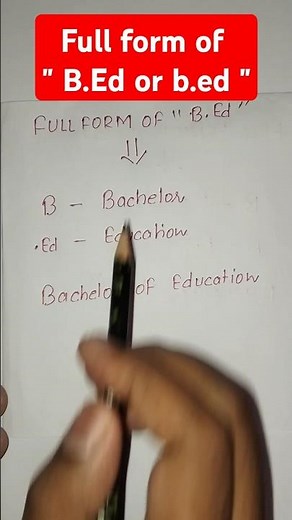 Full form of
" B.Ed or b.ed "
FULL FORM OF "B.Ed"
B - Bachelor
.Ed - Education
Bachelor of Education